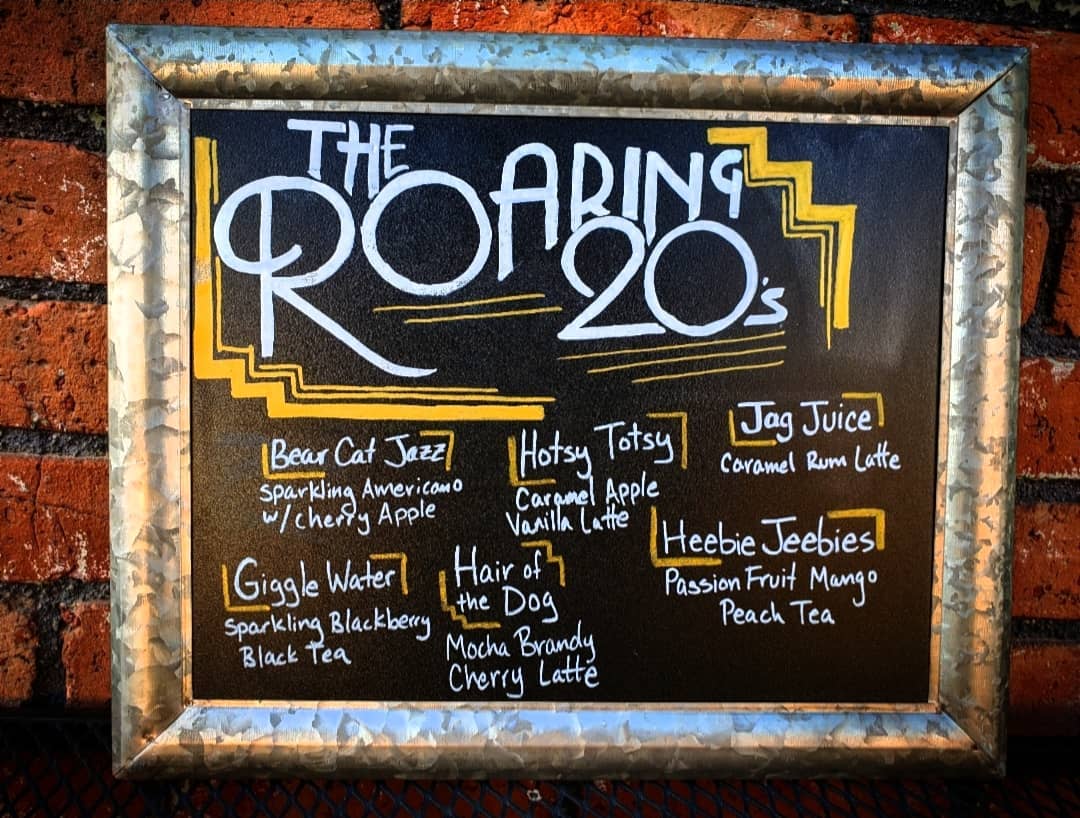 THE
ROARING
20's
Bear Cat Jazz
Sparkling Americano
w/ Cherry Apple
Hotsy Totsy
Caramel Apple
Vanilla Latte
Jag Juice
Caramel Rum Latte
Giggle Water
Sparkling Blackberry
Black Tea
Hair of
the Dog
Mocha Brandy
Cherry Latte
Heebie Jeebies
Passion Fruit Mango
Peach Tea